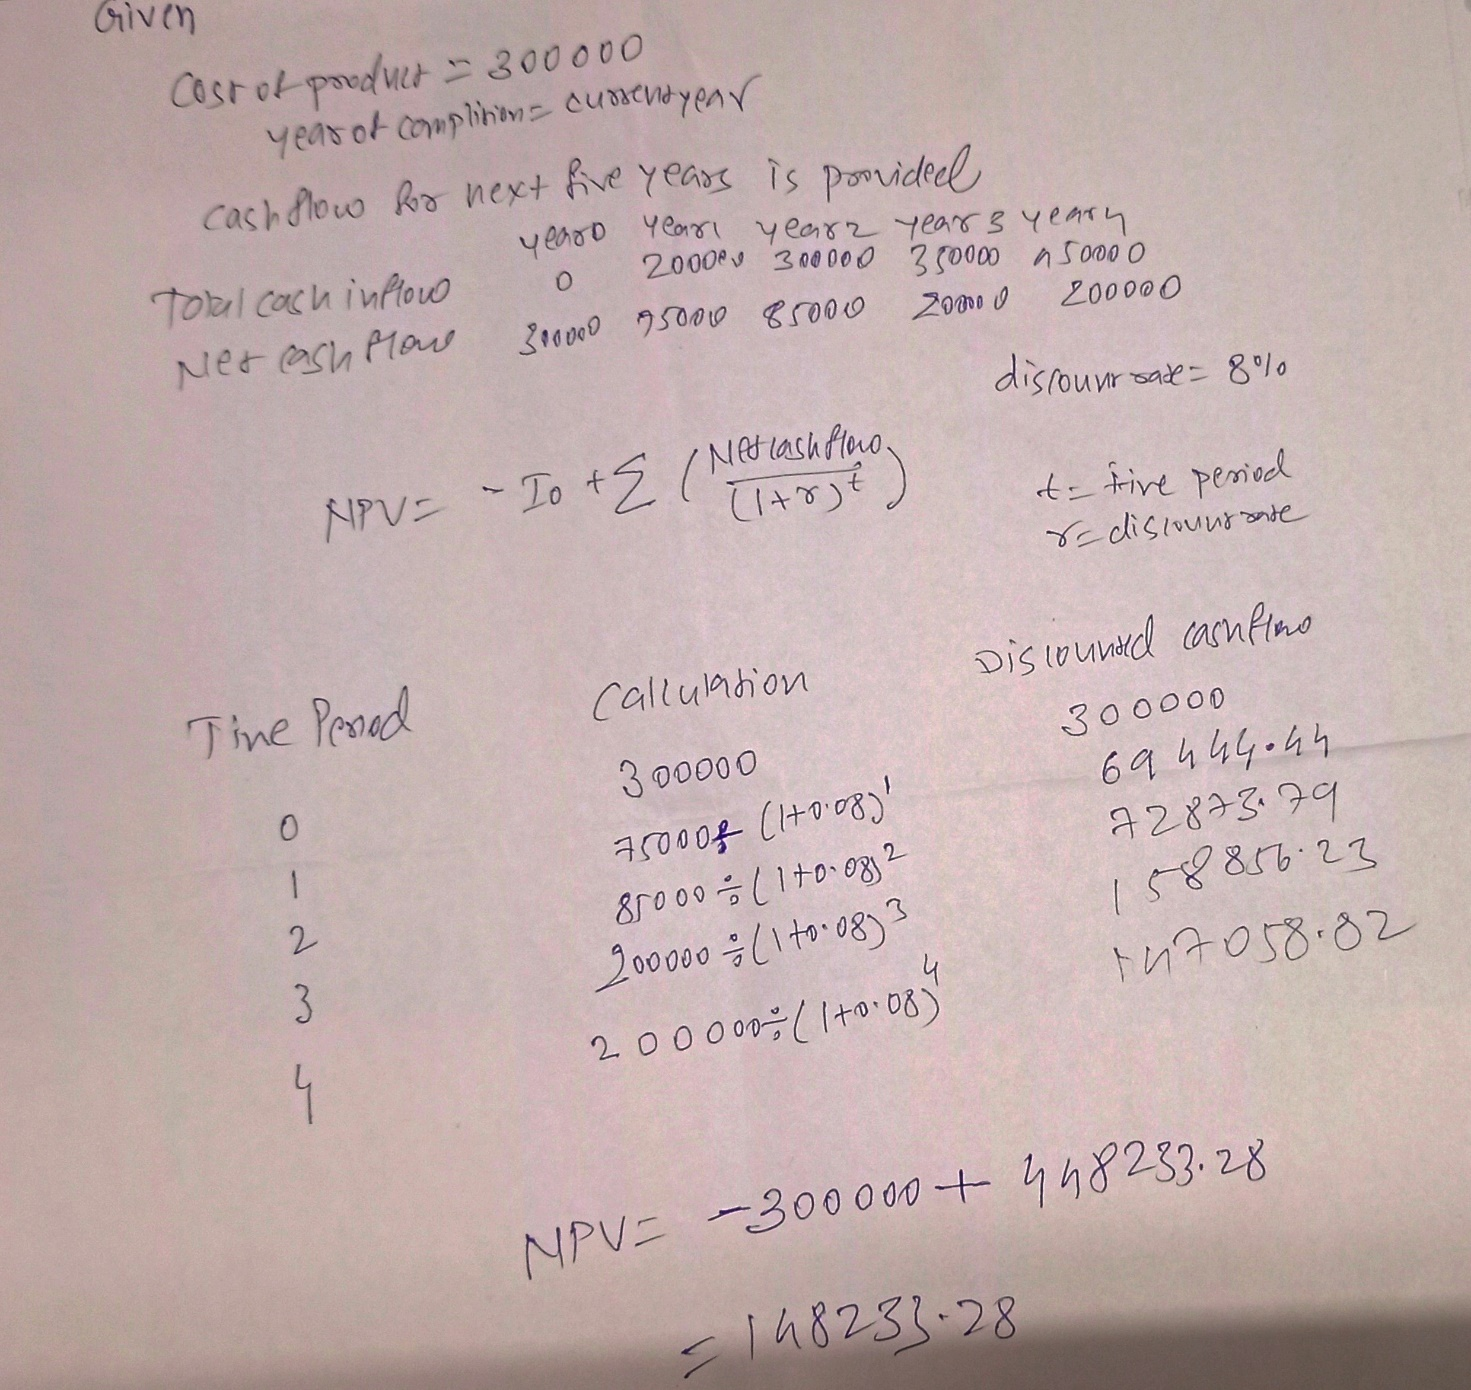 Given
Cost of product = 300000
year of complition = current year
cash flow for next five years is provided
year 0 year 1 year 2 year 3 year 4
Total cash inflow 0 200000 300000 350000 450000
Net cash flow 300000 75000 85000 200000 200000
discount rate = 8%
NPV = - I0 + Σ (Net cash flow / (1+r)^t)
t = time period
r = discount rate
Time Period Calculation Discounted cashflow
0 300000 300000
1 75000 ÷ (1+0.08)^1 69444.44
2 85000 ÷ (1+0.08)^2 72873.79
3 200000 ÷ (1+0.08)^3 158856.23
4 200000 ÷ (1+0.08)^4 147058.82
NPV = -300000 + 448233.28
= 148233.28